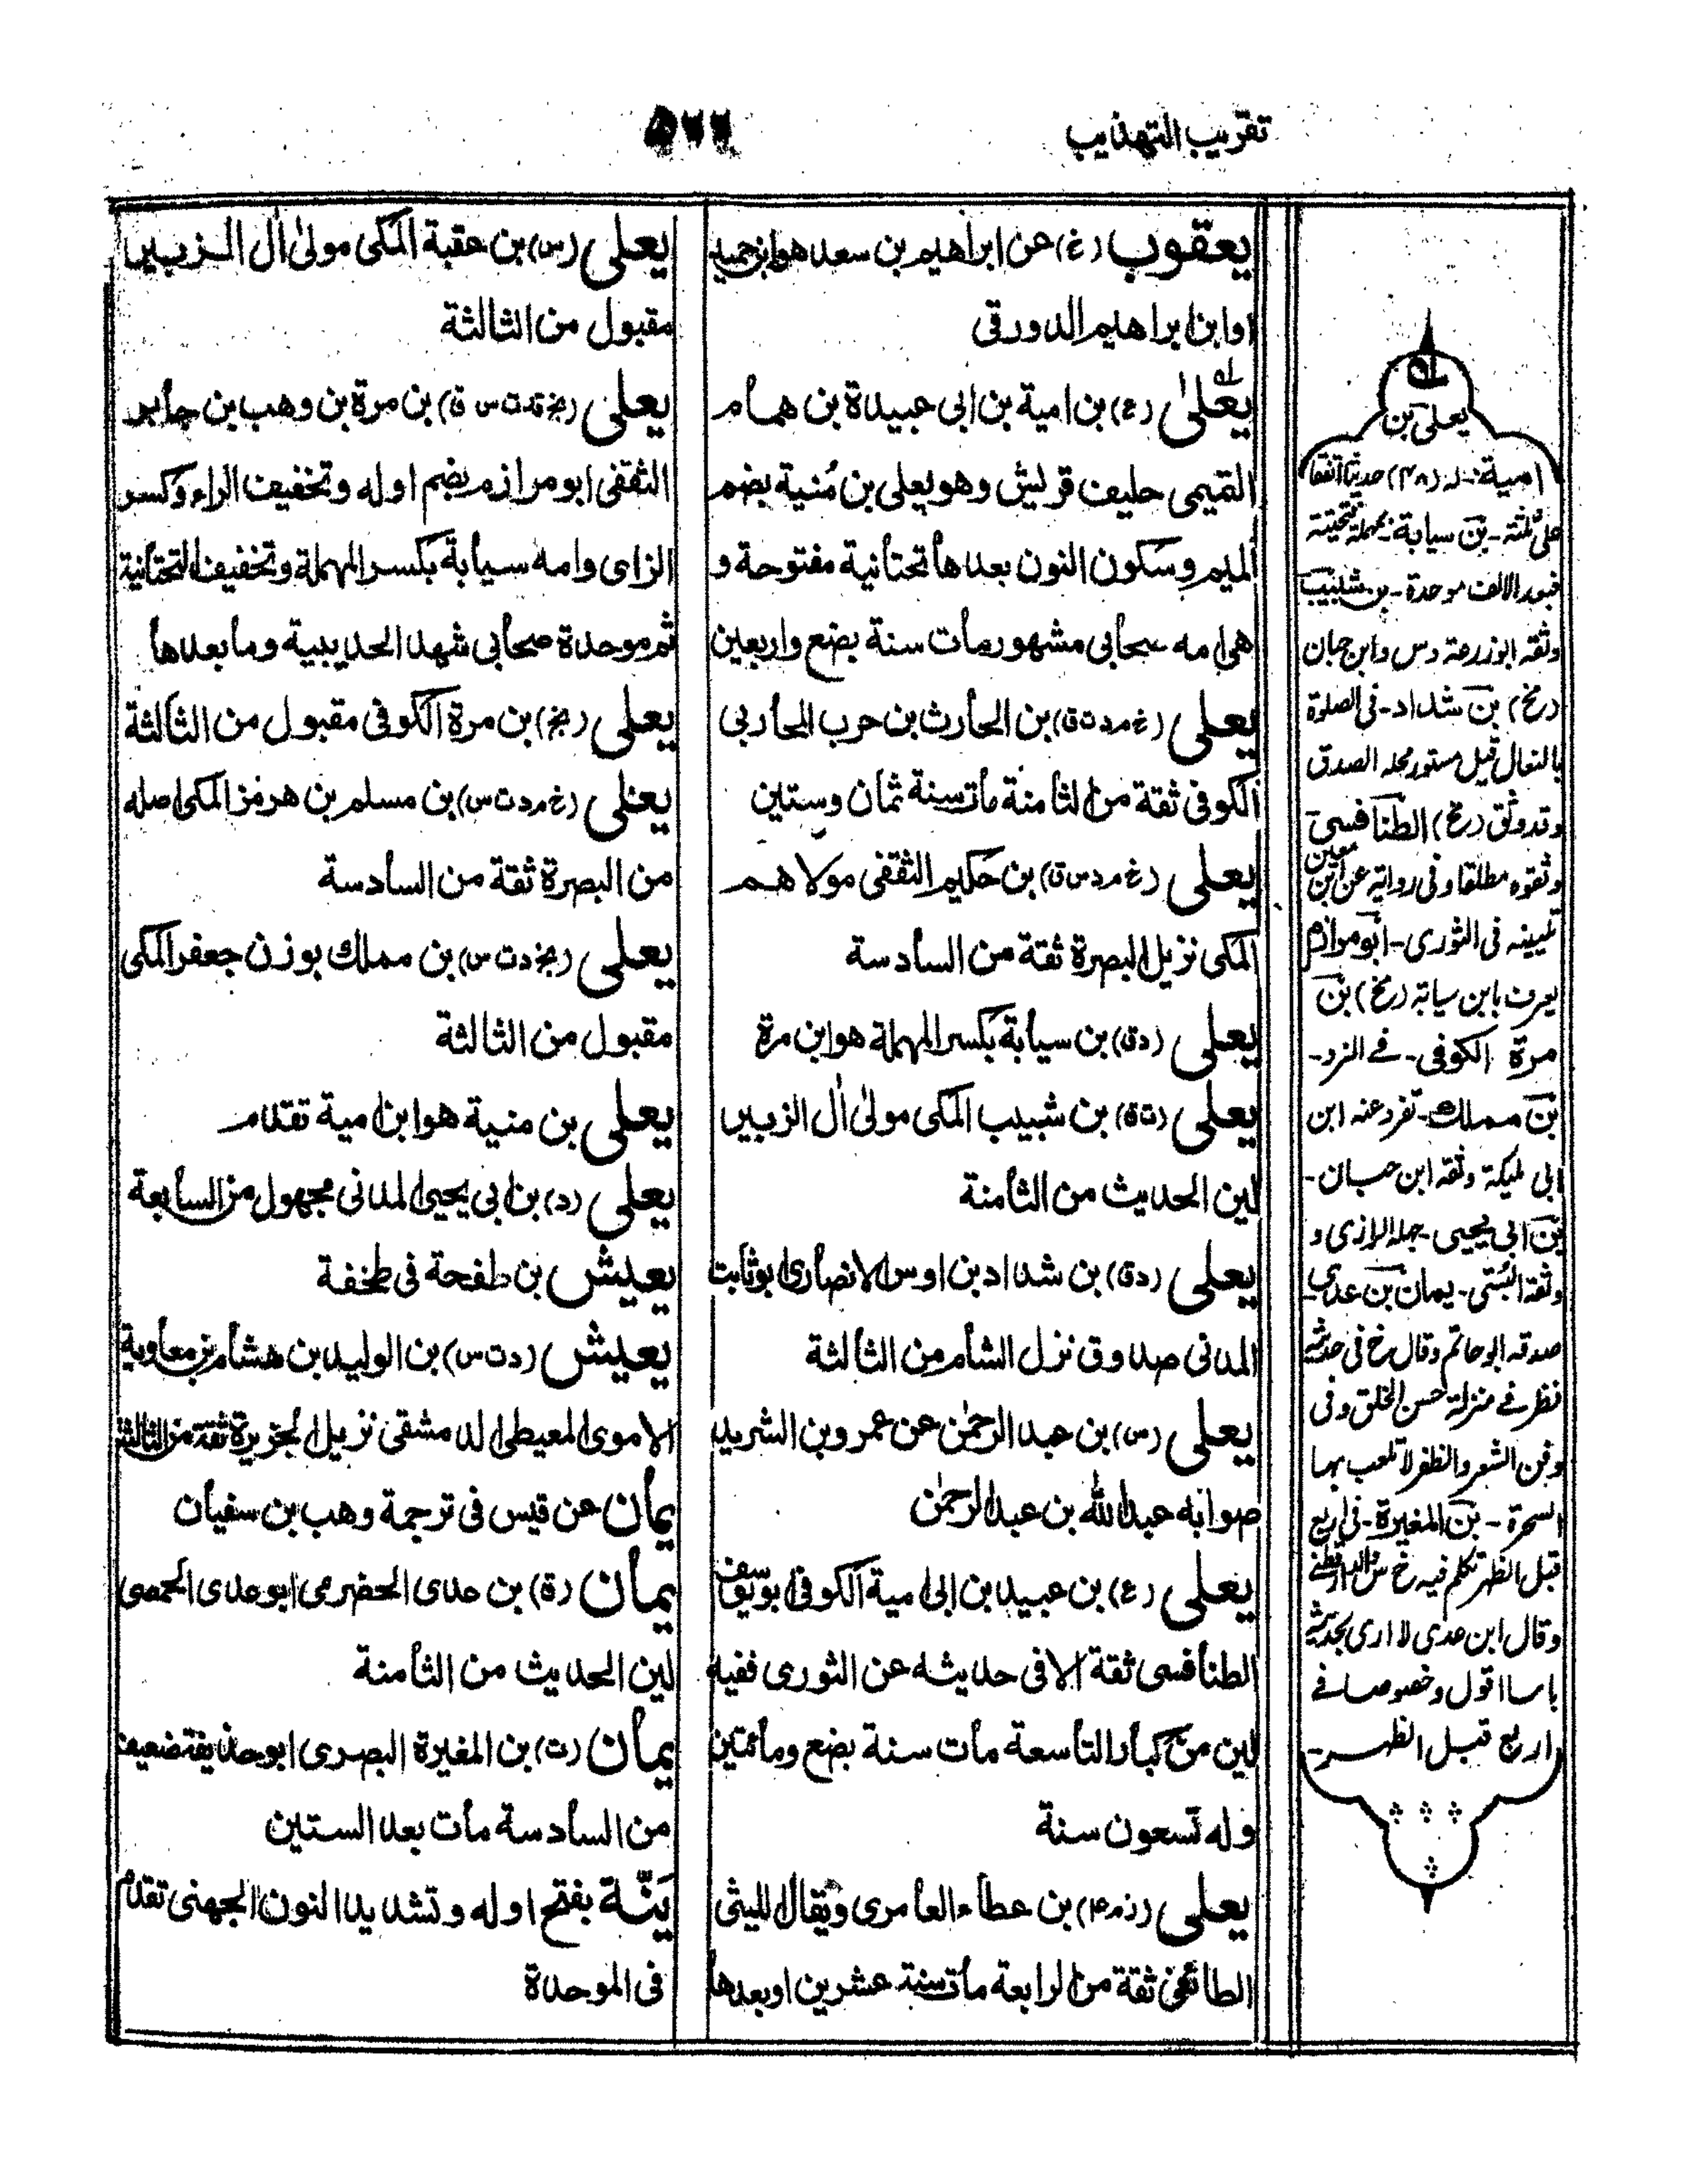 تقريب التهذيب
٥٦٦
يعقوب (غ) عن ابراهيم بن سعد هوابن حميد
اوابن ابراهيم الدورقى
يعلىٰ (ع) بن امية بن ابى عبيدة بن همام
التميمى حليف قريش وهويعلى بن مُنية بضم
الميم وسكون النون بعدها تحتانية مفتوحة و
هى امه صحابى مشهور مات سنة بضع واربعين
يعلى (خ م د ت ق) بن الحارث بن حرب المحاربى
الكوفى ثقة من الثامنة مات سنة ثمان وستين
يعلى (خ م د س ق) بن حكيم الثقفى مولاهم
المكى نزيل البصرة ثقة من السادسة
يعلى (دق) بن سيابة بكسر المهملة هوابن مرة
يعلى (ت ق) بن شبيب المكى مولىٰ اٰل الزبير
لين الحديث من الثامنة
يعلى (دق) بن شداد بن اوس الانصارى ابوثابت
المدنى صدوق نزل الشام من الثالثة
يعلى (س) بن عبد الرحمٰن عن عمروبن الشريد
صوابه عبد الله بن عبد الرحمٰن
يعلى (ع) بن عبيد بن ابى امية الكوفى ابويوسف
الطنافسى ثقة الا فى حديثه عن الثورى ففيه
لين من كبار التاسعة مات سنة بضع ومائتين
وله تسعون سنة
يعلى (ز م ع) بن عطاء العامرى ويقال الليثى
الطائفى ثقة من الرابعة مات سنة عشرين اوبعدها
يعلى (س) بن عقبة المكى مولىٰ اٰل الزبير
مقبول من الثالثة
يعلى (بخ قد ت س ق) بن مرة بن وهب بن جابر
الثقفى ابو مرازم بضم اوله وتخفيف الراء وكسر
الزاى وامه سيابة بكسر المهملة وتخفيف التحتانية
ثم موحدة صحابى شهد الحديبية وما بعدها
يعلى (بخ) بن مرة الكوفى مقبول من الثالثة
يعلى (خ م د ت س) بن مسلم بن هرمز المكى اصله
من البصرة ثقة من السادسة
يعلى (بخ د ت س) بن مملك بوزن جعفر المكى
مقبول من الثالثة
يعلى بن منية هوابن امية تقدم
يعلى (د) بن ابى يحيى المدنى مجهول من السابعة
يعيش بن طفحة فى طخفة
يعيش (د ت س) بن الوليد بن هشام بن معاوية
الاموى المعيطى الدمشقى نزيل الجزيرة ثقة من الثالثة
يمان عن قيس فى ترجمة وهب بن سفيان
يمان (ق) بن عدى الحضرمى ابوعدى الحمصى
لين الحديث من الثامنة
يمان (ت) بن المغيرة البصرى ابوحذيفة ضعيف
من السادسة مات بعد الستين
يَنّة بفتح اوله وتشديد النون الجهنى تقدم
فى الموحدة
يعلى بن
امية:- له (٢٨) حديثا اتفقا
على ثلثة - بن سيابة: بمهملة فتحتية
فبعد الالف موحدة - بن شبيب
وثقه ابوزرعة دس وابن حبان
(نخ) بن شداد - فى الصلوة
بالنعال قيل مستور محله الصدق
وقد وثق (نخ) الطنافسى
وثقوه مطلقا وفى رواية عن ابن معين
تليينه فى الثورى - ابومرازم
يعرف بابن سيابة (نخ) بن
مرة الكوفى - فى النرد -
بن مملك - تفرد عنه ابن
ابى مليكة وثقه ابن حبان -
بن ابى يحيى - جهله الرازى و
وثقه البستى - يمان بن عدى
صدقه ابوحاتم وقال خ فى حديثه
نظر فى منزلة حسن الخلق وفى
وفن الشعر والظفر لا تلعب بها
السحرة - بن المغيرة - فى اربع
قبل الظهر تكلم فيه خ س والدارقطنى
وقال ابن عدى لا ارى بحديثه
باسا اقول وخصوصا فى
اربع قبل الظهر -